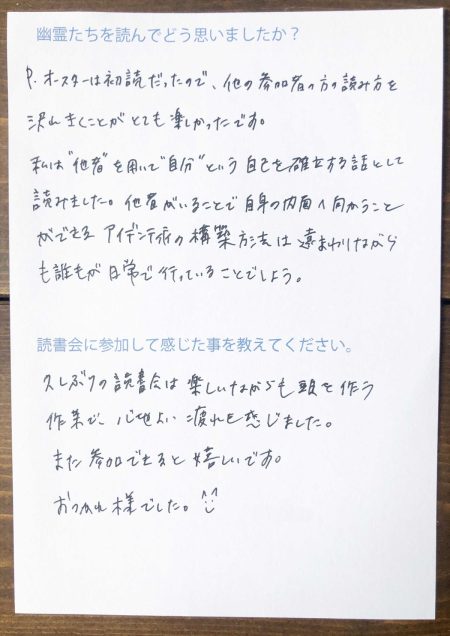 幽霊たちを読んでどう思いましたか？
P.オースターは初読だったので、他の参加者の方の読み方を
沢山きくことがとても楽しかったです。
私は"他者"を用いて"自分"という自己を確立する話として
読みました。他者がいることで自身の内面へ向かうこと
ができる アイデンティティの構築方法は遠まわりながら
も誰もが日常で行っていることでしょう。
読書会に参加して感じた事を教えてください。
久しぶりの読書会は楽しいながらも頭を使う
作業で、心地よい疲れを感じました。
また参加できると嬉しいです。
おつかれ様でした。